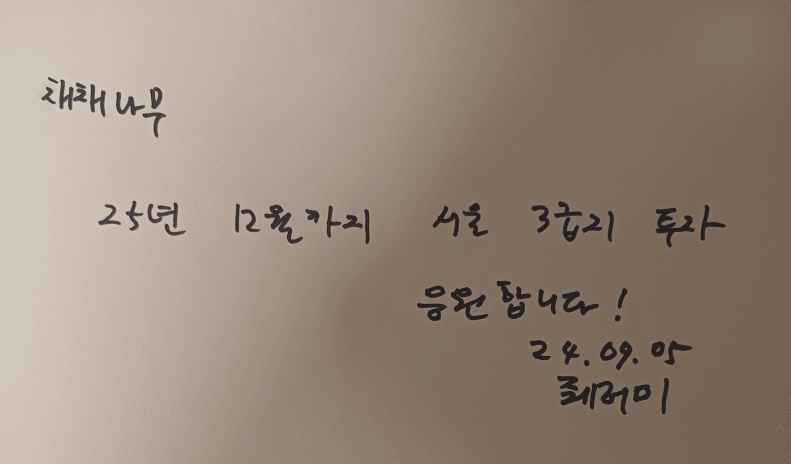 채채나무
25년 12월까지 서울 3급지 투자
응원합니다!
24.09.05